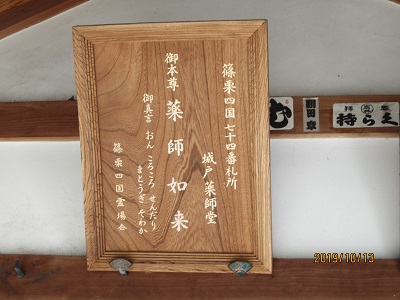 篠栗四国七十四番札所
城戸薬師堂
御本尊 薬師如来
御真言 おん ころころ せんだり
まとうぎ そわか
篠栗四国霊場会
2019/10/13